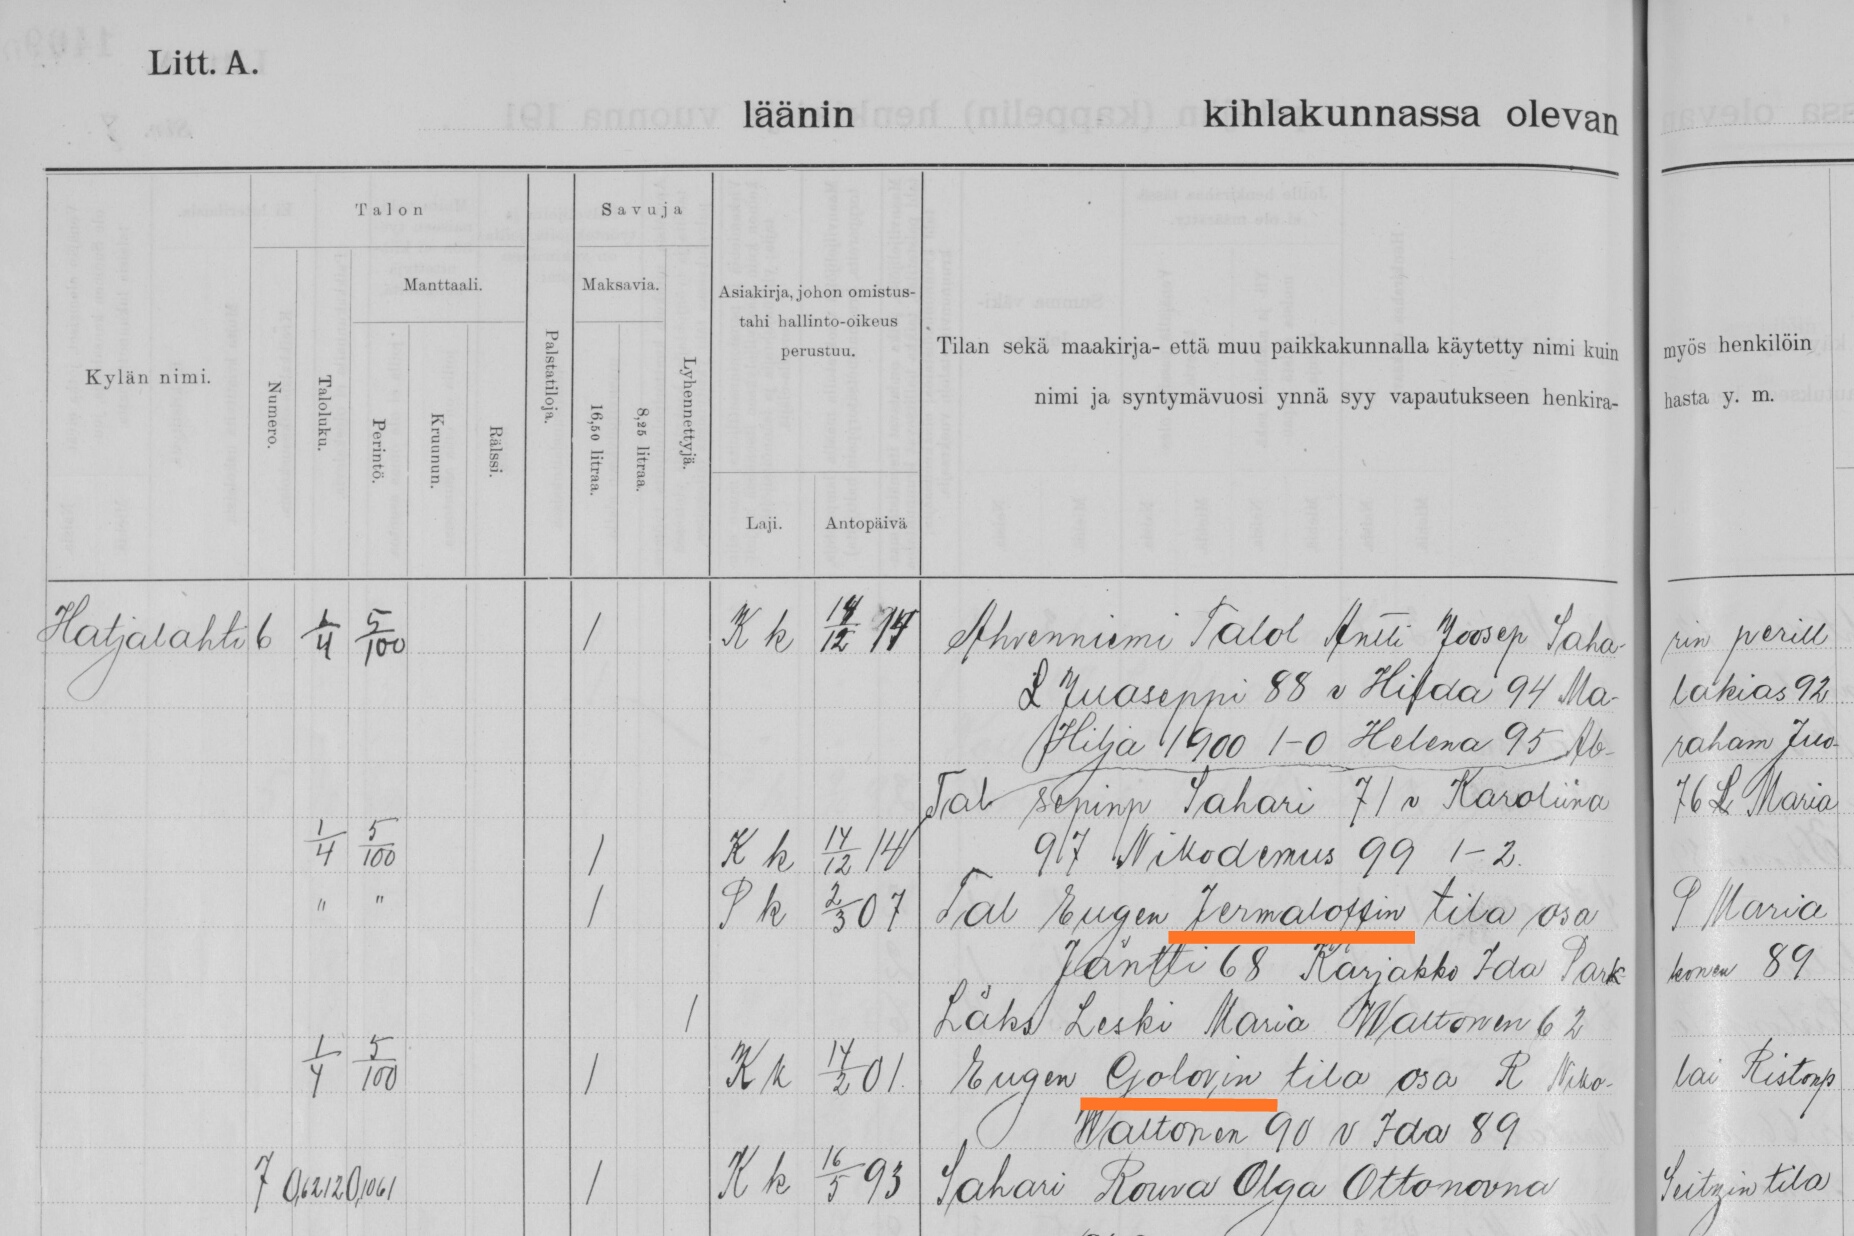 Litt. A.
läänin kihlakunnassa olevan
Talon
Savuja
Manttaali.
Maksavia.
Asiakirja, johon omistus-
tahi hallinto-oikeus
perustuu.
Kylän nimi.
Numero.
Taloluku.
Perintö.
Kruunun.
Rälssi.
Palstatiloja.
16,50 litraa.
8,25 litraa.
Lyhennettyjä.
Laji.
Antopäivä
Tilan sekä maakirja- että muu paikkakunnalla käytetty nimi kuin myös henkilöin
nimi ja syntymävuosi ynnä syy vapautukseen henkira- hasta y. m.
Hatjalahti 6 1/4 5/100 1 K k 14/12 14 Ahvenniemi Talol Antti Joosep Saha- rin perill
L Juaseppi 88 v Hilda 94 Ma- lakias 92
Hilja 1900 1-0 Helena 95 Ab- raham Juo-
Tal sepinp Sahari 71 v Karoliina 76 L Maria
1/4 5/100 1 K k 14/12 14 97 Nikodemus 99 1-2.
" " 1 P k 2/3 07 Tal Eugen Jermaloffin tila osa P Maria
Jäntti 68 Karjakko Ida Park- konen 89
1 Läks Leski Maria Waltonen 62
1/4 5/100 1 K k 14/2 01. Eugen Golovin tila osa R Niko- lai Ristonp
Waltonen 90 v Ida 89
7 0,6212 0,1061 1 K k 16/5 93 Sahari Rouva Olga Ottonovna Seitzin tila